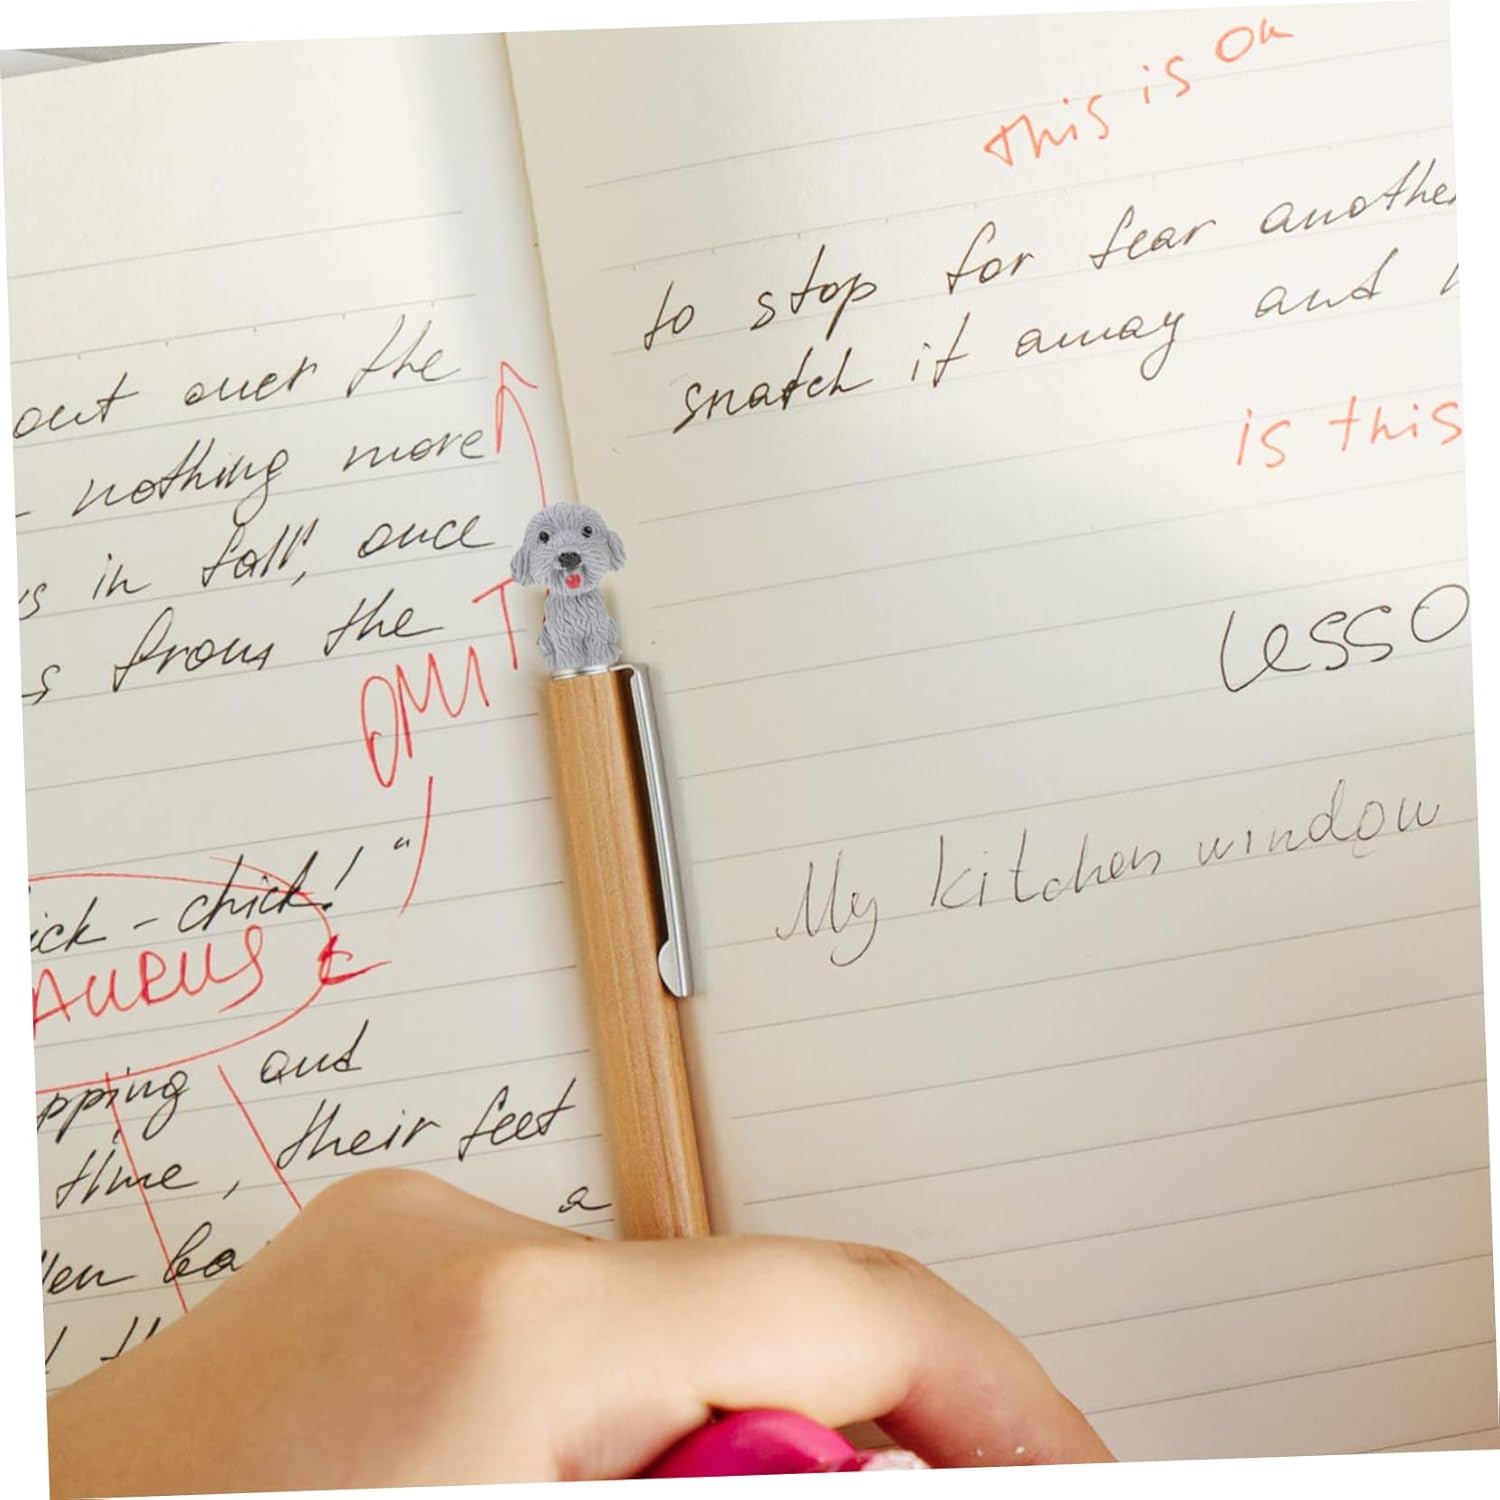 out over the
nothing more
in fall, once
from the
OMIT
ick - chick!"
pping and
time, their feet
a
this is on
to stop for fear another
snatch it away and
is this
Lesso
My kitchen window